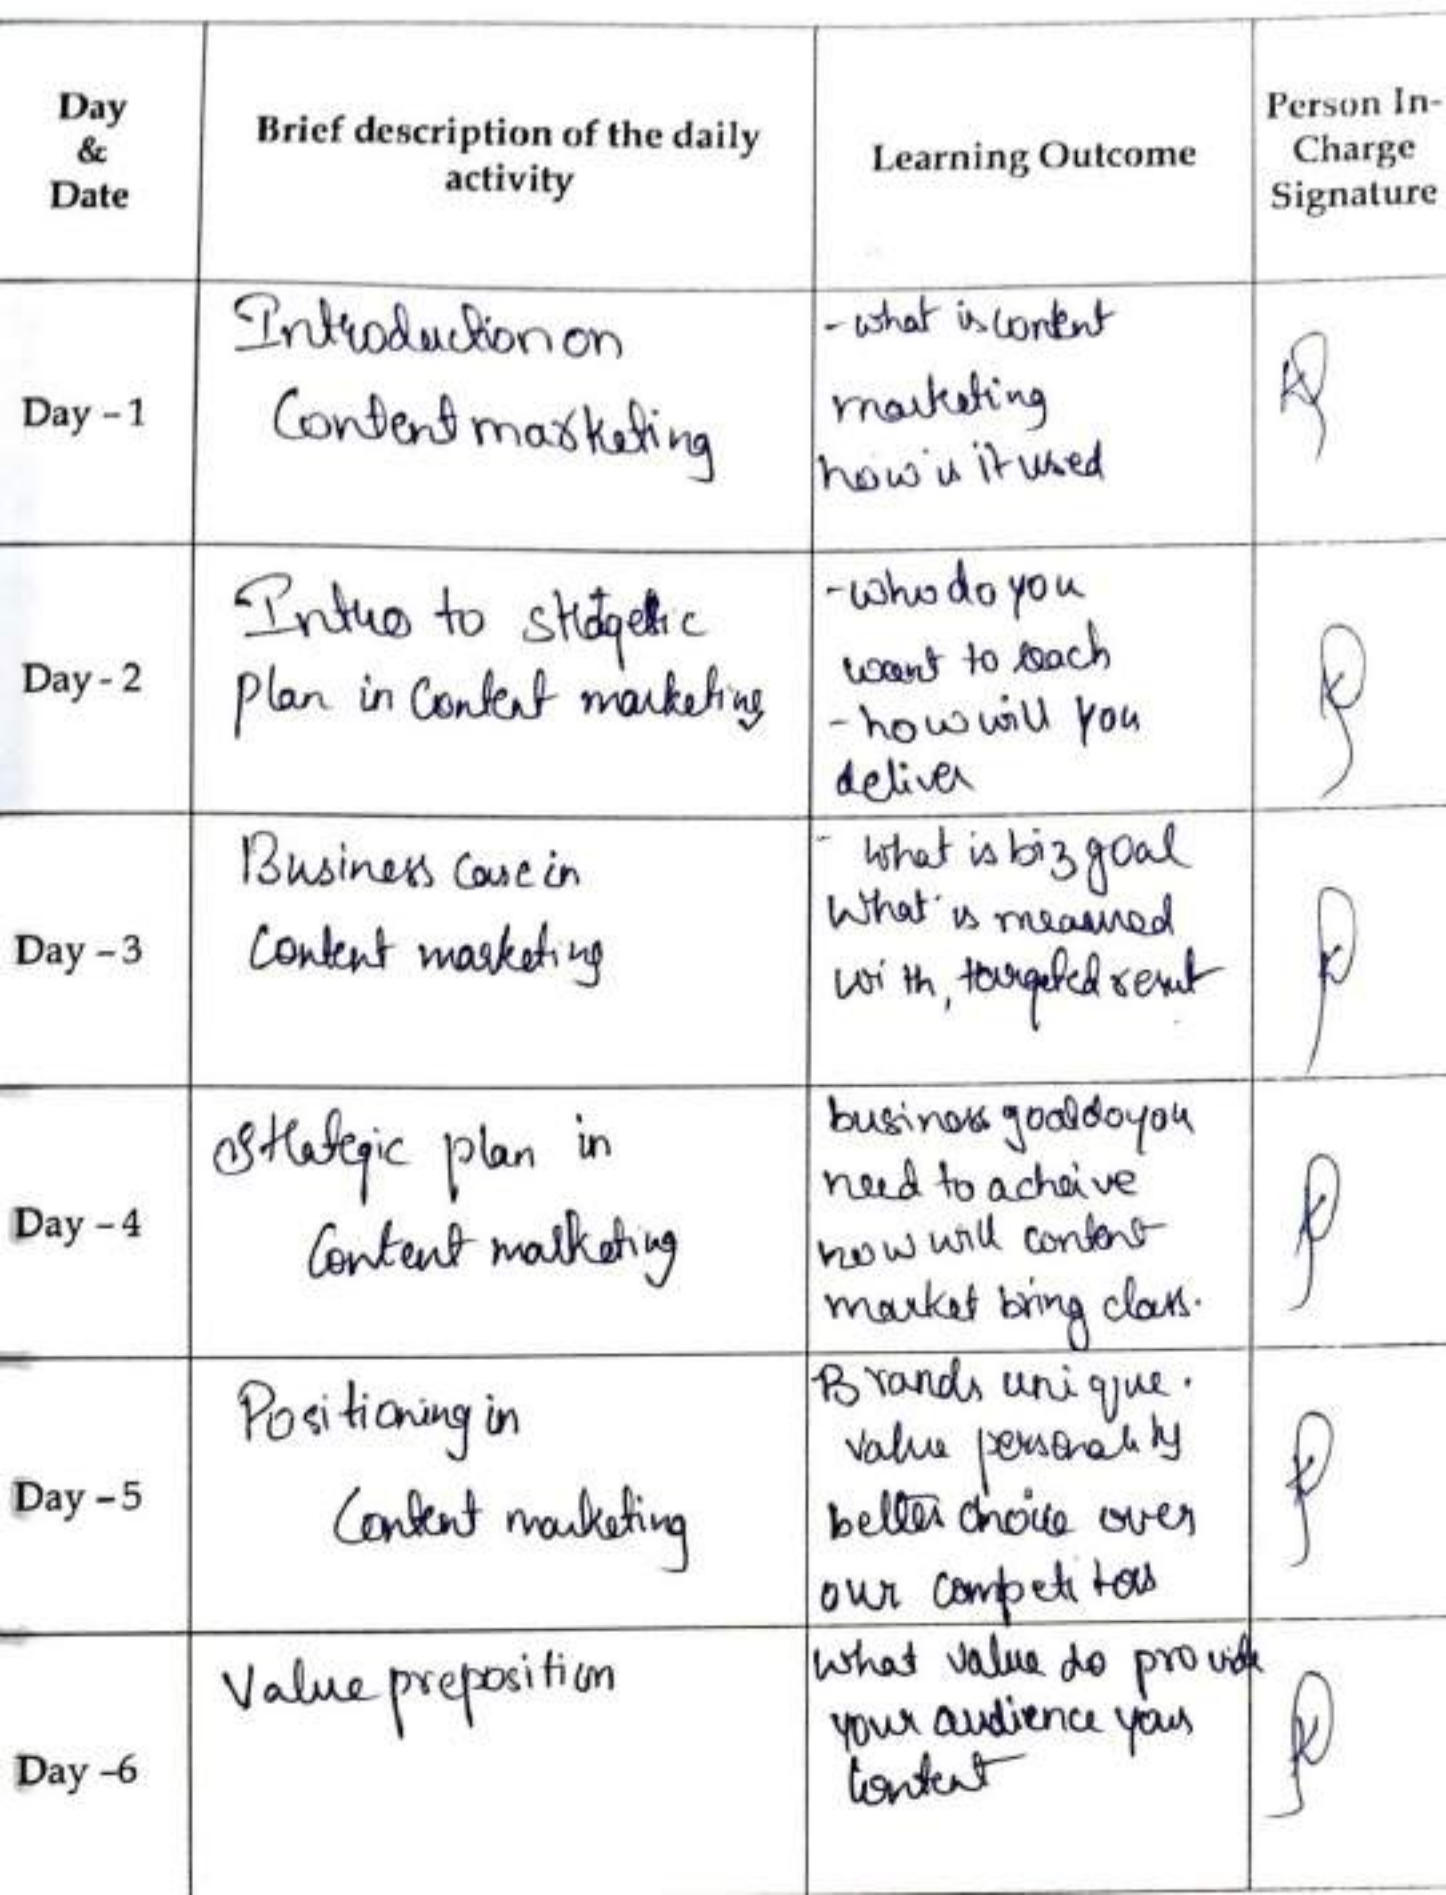 Day
&
Date
Brief description of the daily
activity
Learning Outcome
Person In-
Charge
Signature
Day – 1
Introduction on
Content marketing
- what is content
marketing
how is it used
Day - 2
Intro to
plan in Content marketing
- who do you
want to reach
- how will you
deliver
Day – 3
Business case in
Content marketing
- what is biz goal
What is measured
with, targeted result
Day – 4
Strategic plan in
Content marketing
business goal do you
need to acheive
how will content
market bring class.
Day – 5
Positioning in
Content marketing
Brands unique.
value personality
better choice over
our competitors
Day –6
Value preposition
What value do provide
your audience your
content